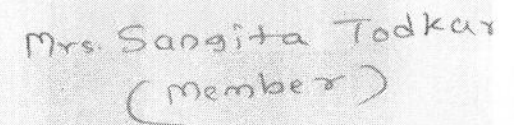 Mrs. Sangita Todkar
(Member)